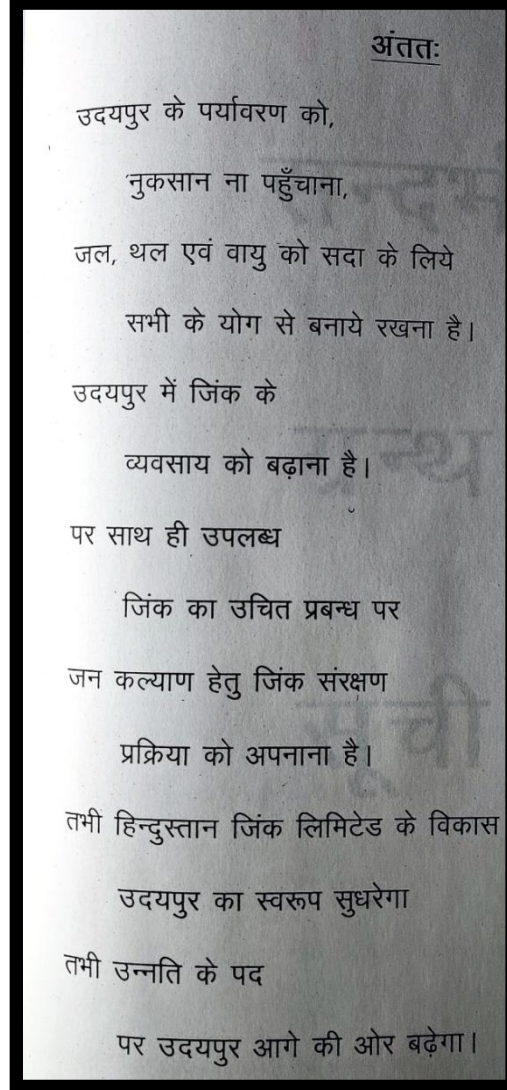 अंततः
उदयपुर के पर्यावरण को,
नुकसान ना पहुँचाना,
जल, थल एवं वायु को सदा के लिये
सभी के योग से बनाये रखना है।
उदयपुर में जिंक के
व्यवसाय को बढ़ाना है।
पर साथ ही उपलब्ध
जिंक का उचित प्रबन्ध पर
जन कल्याण हेतु जिंक संरक्षण
प्रक्रिया को अपनाना है।
तभी हिन्दुस्तान जिंक लिमिटेड के विकास
उदयपुर का स्वरूप सुधरेगा
तभी उन्नति के पद
पर उदयपुर आगे की ओर बढ़ेगा।